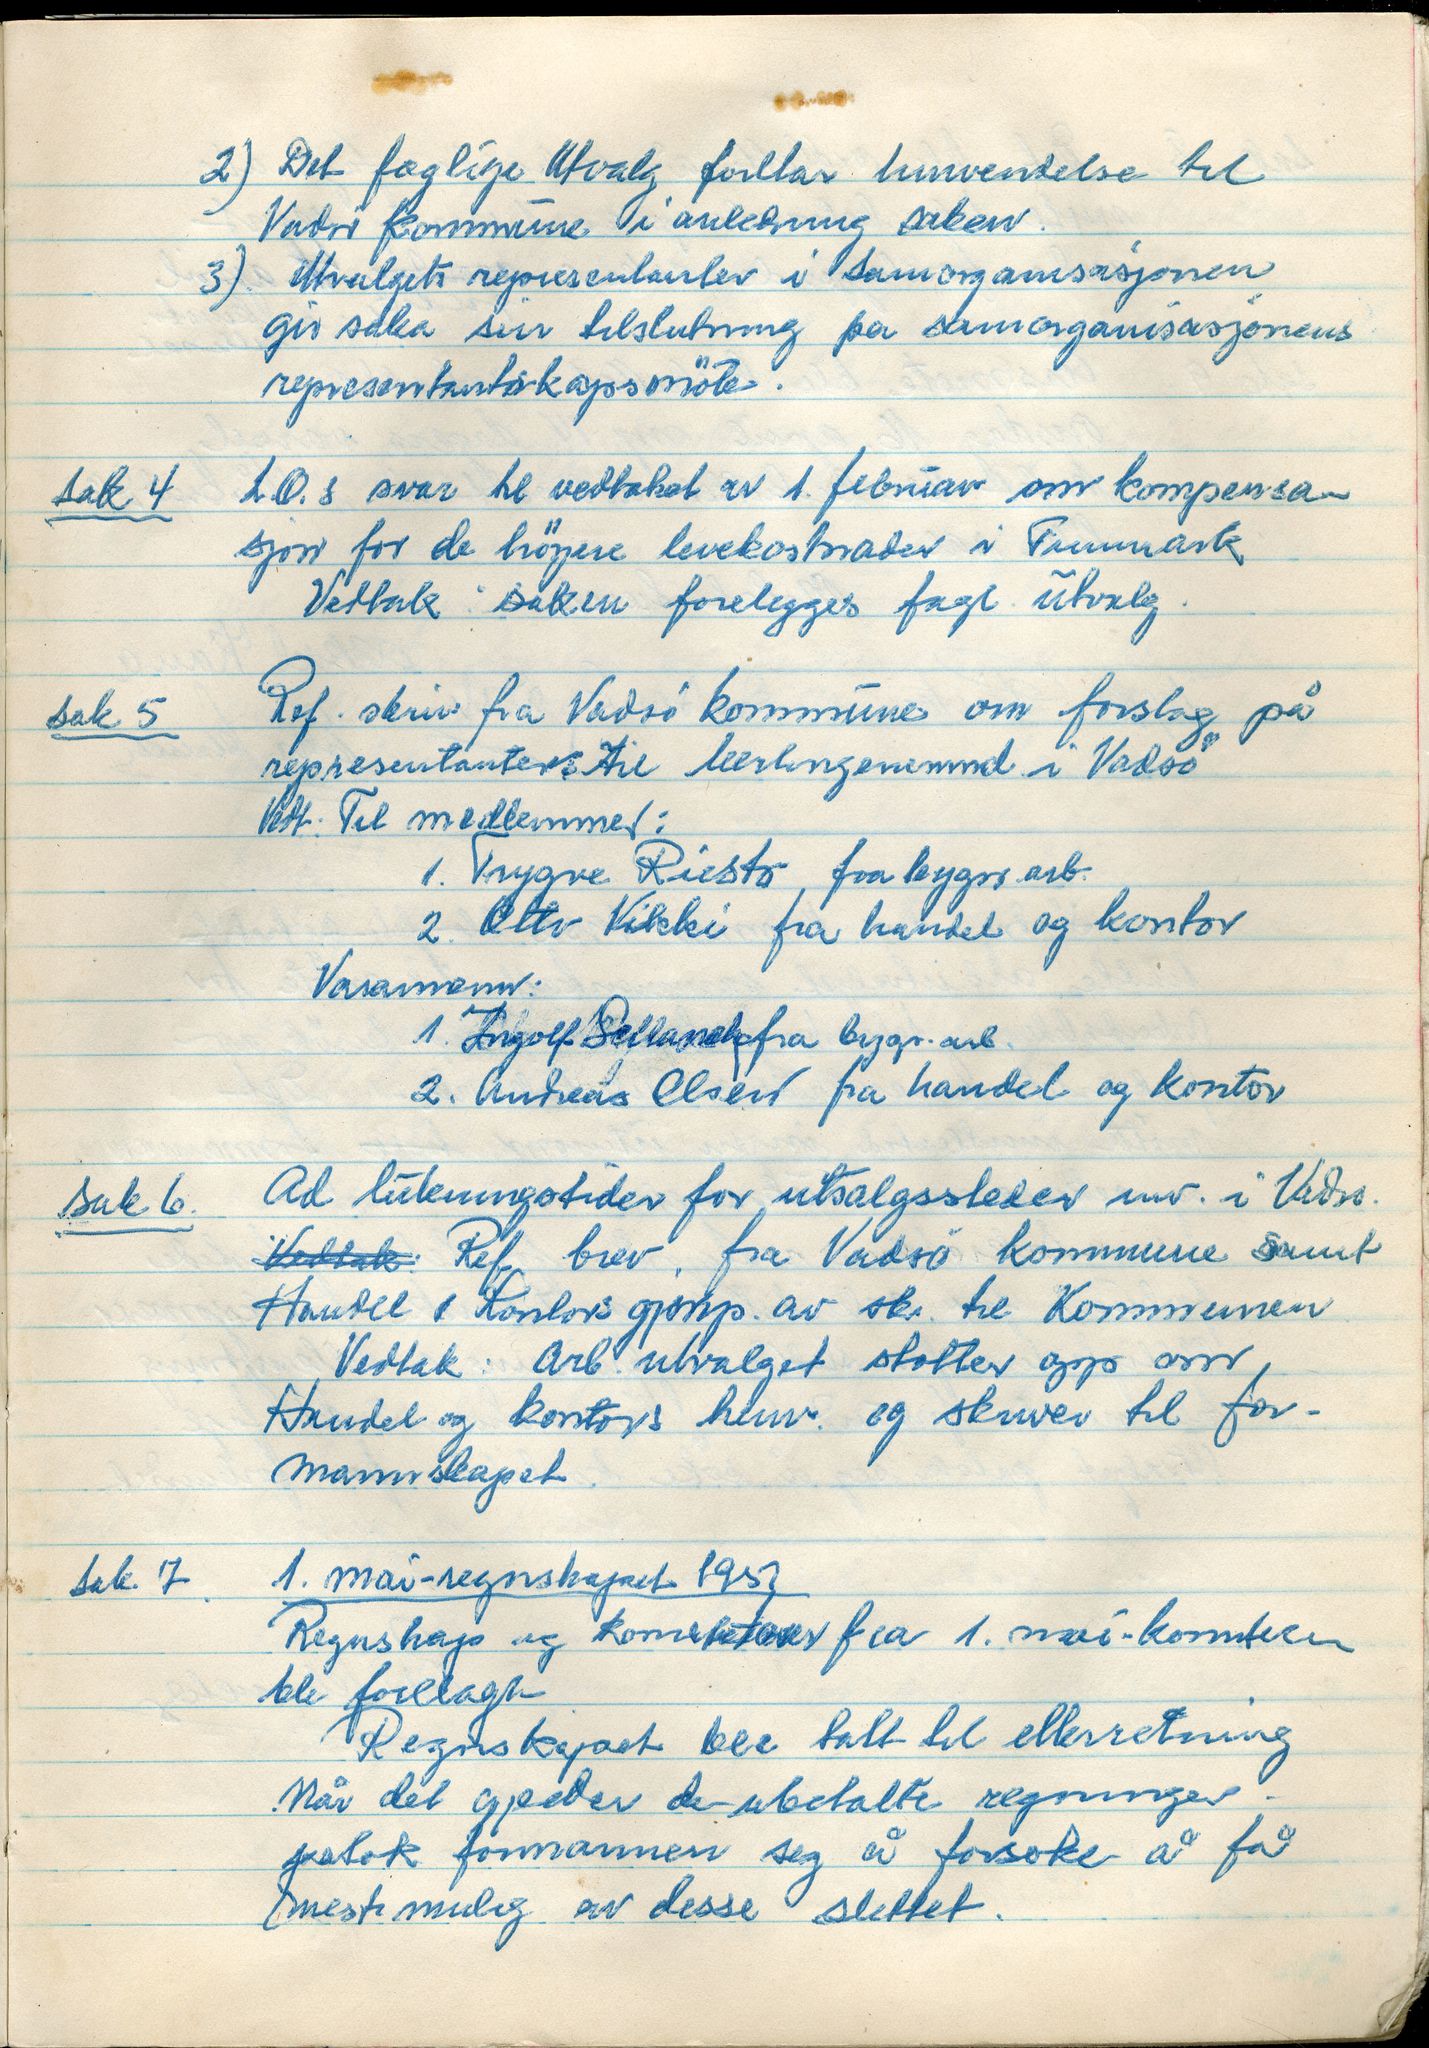 2) Det faglige Utvalg foretar henvendelse til
Vadsö kommune i anledning saken.
3). Utvalgets representanter i Samorganisasjonen
gir saka sin tilslutning på samorganisasjonens
representantskapsmöte.
Sak 4 L.O.s svar til vedtaket av 1. februar om kompensa-
sjon for de höyere levekostnader i Finnmark
Vedtak: Saken forelegges fagl. utvalg.
Sak 5 Ref. skriv fra Vadsö kommune om forslag på
representanter til lærlingenemnd i Vadsö
Vedt. Til medlemmer:
1. Trygve Riesto fra bygn.arb.
2. Otto Vikki fra handel og kontor
Varamenn:
1. Ingolf fra bygn.arb.
2. Andreas Olsen fra handel og kontor
Sak 6. Ad lukningstider for utsalgssteder mv. i Vadsö.
Vedtak: Ref. brev fra Vadsö kommune samt
Handel & Kontors gjenp. av skr. til Kommunen
Vedtak: Arb. utvalget støtter opp om
Handel og kontors henv. og skriver til for-
mannskapet.
Sak 7 1. mai-regnskapet 1957
Regnskap og fra 1. mai-komiteen
ble forelagt
Regnskapet ble tatt til etterretning
Når det gjelder de ubetalte regninger
påtok formannen seg å forsøke å få
mest mulig av desse slettet.